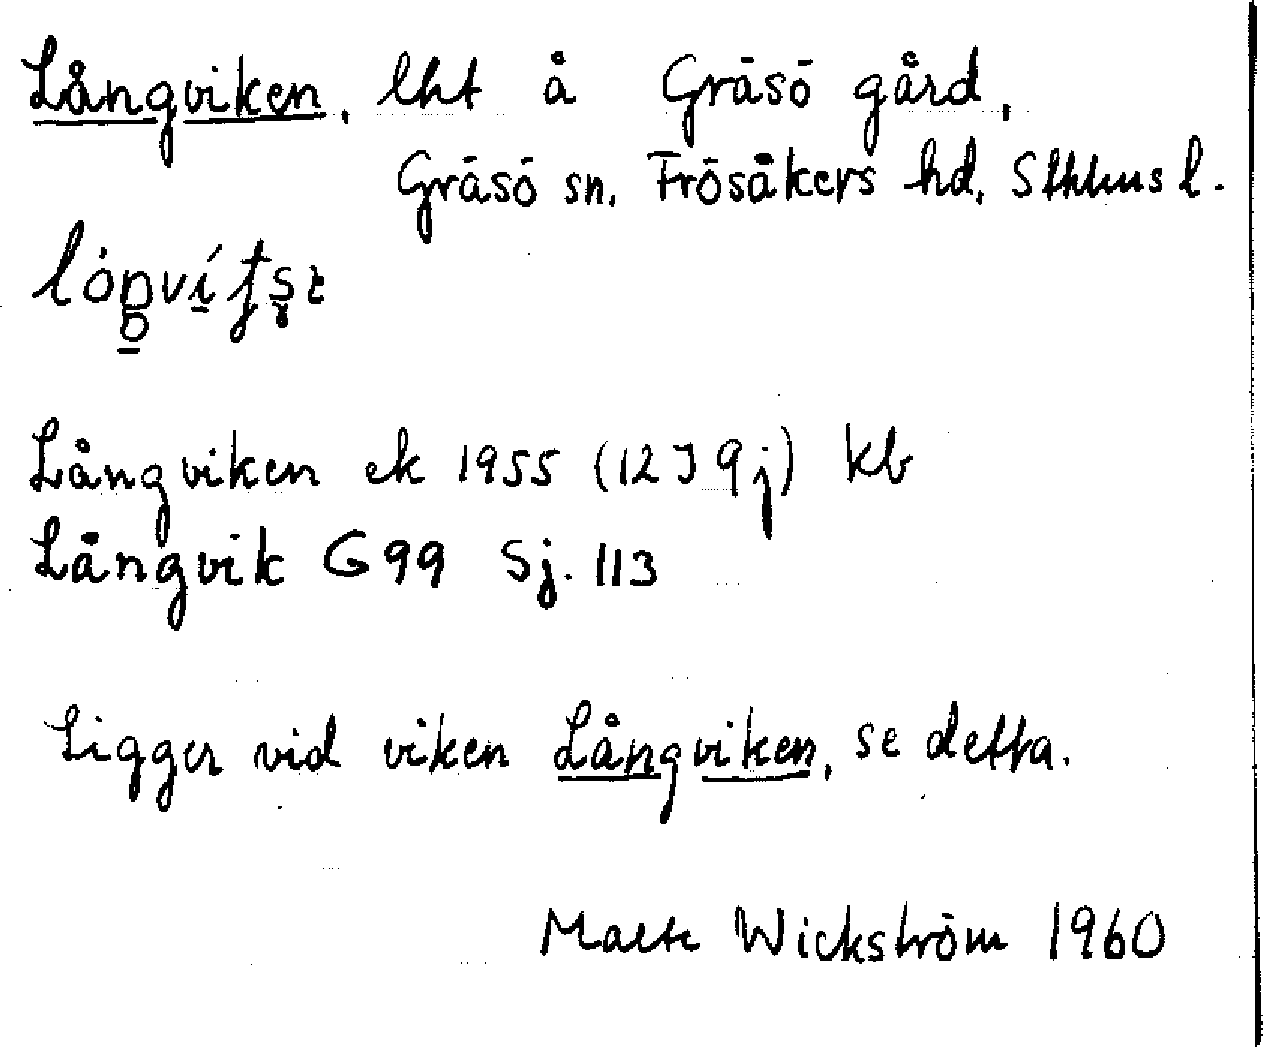 Långviken, lht å Gräsö gård,
Gräsö sn, Frösåkers hd, Sthlms l.
Långviken ek 1955 (12J9j) kb
Långvik G99 Sj. 113
Ligger vid viken Långviken, se detta.
Wickström 1960